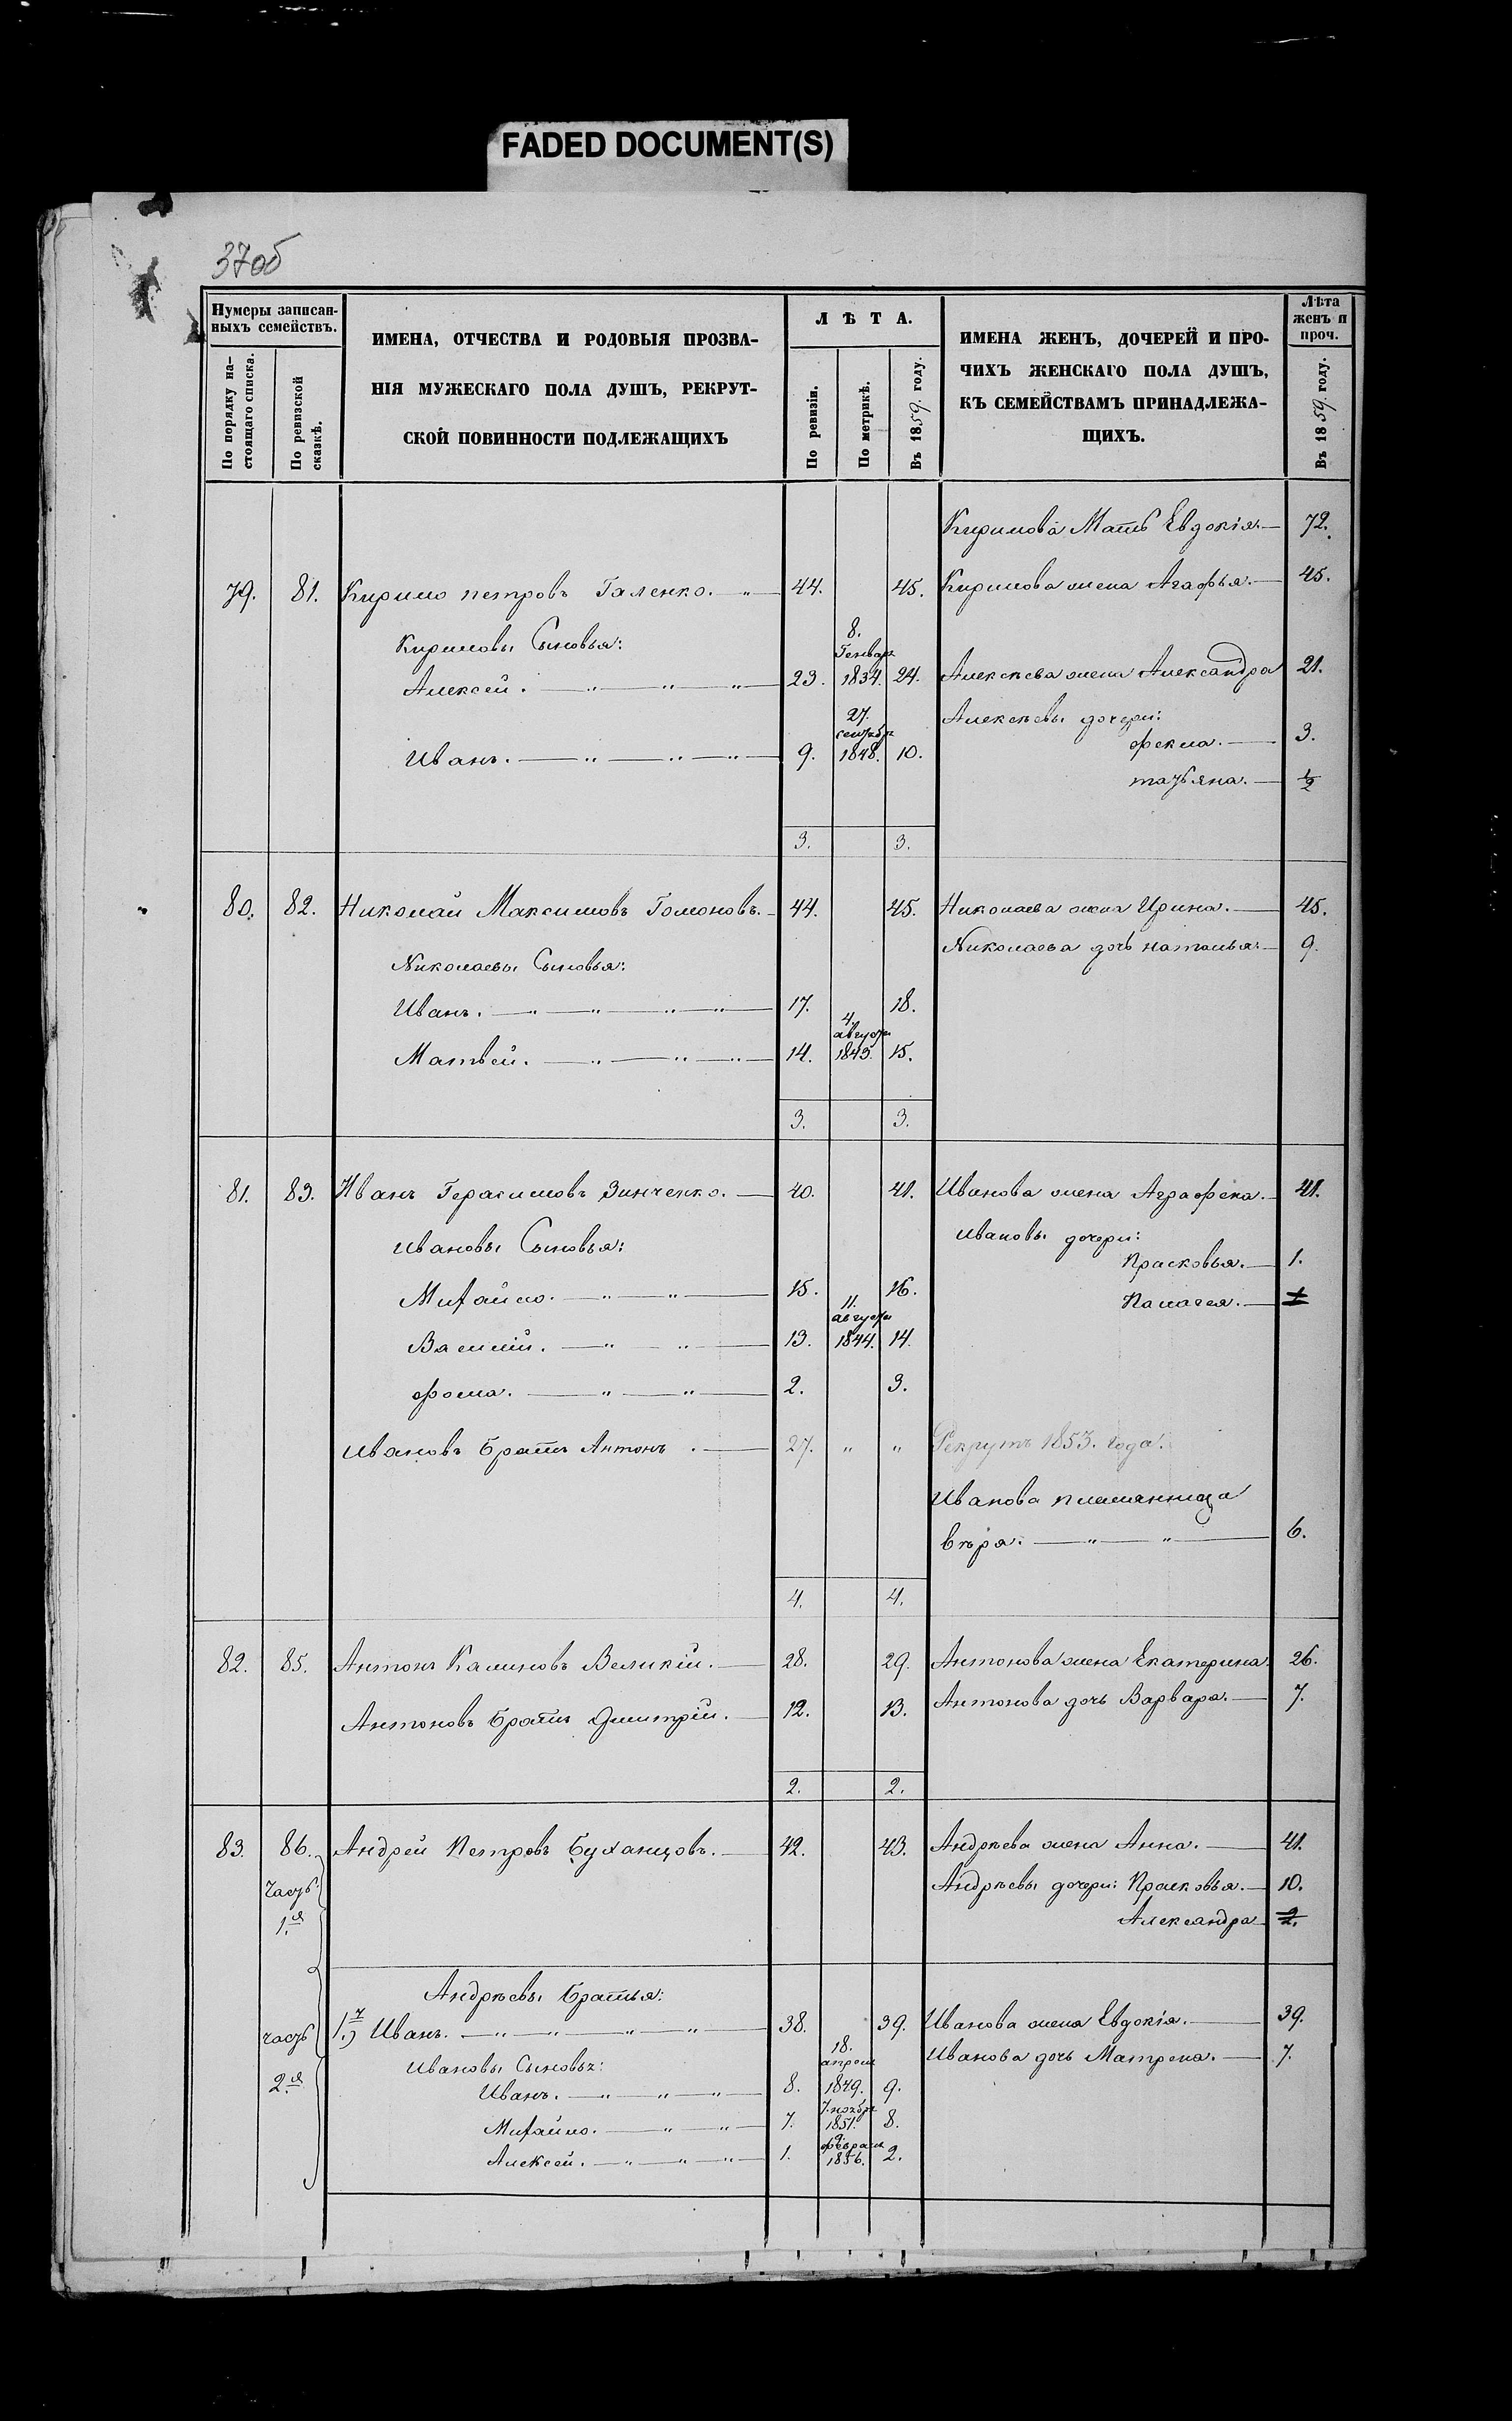 FADED DOCUMENT(S)
37об
Нумеры записан-
ныхъ семействъ.
По порядку на-
стоящаго списка.
По ревизской
сказкѣ.
ИМЕНА, ОТЧЕСТВА И РОДОВЫЯ ПРОЗВА-
НІЯ МУЖЕСКАГО ПОЛА ДУШЪ, РЕКРУТ-
СКОЙ ПОВИННОСТИ ПОДЛЕЖАЩИХЪ
ЛѢТА.
По ревизіи.
По метрикѣ.
Въ 1859. году.
ИМЕНА ЖЕНЪ, ДОЧЕРЕЙ И ПРО-
ЧИХЪ ЖЕНСКАГО ПОЛА ДУШЪ,
КЪ СЕМЕЙСТВАМЪ ПРИНАДЛЕЖА-
ЩИХЪ.
Лѣта
женъ и
проч.
Въ 1859. году.
Кирилова Мать Евдокія.— 72.
79. 81. Кирило петровъ Галенко. „ — 44. 45. Кирилова жена Агафья.— 45.
Кириловы Сыновья:
8.
Генваря
Алексей. — „ — „ — „ — 23. 1834. 24. Алексѣева жена Александра 21.
27.
сентября
Алексѣевы дочери:
фекла. — 3.
Иванъ. — „ — „ — „ — 9. 1848. 10.
татьяна. — ½
3. 3.
80. 82. Николай Максимовъ Гомоновъ. — 44. 45. Николаева жена Ирина. — 45.
Николаева дочь наталья.— 9.
Николаевы Сыновья:
Иванъ. — „ — „ — „ — „ — 17. 18.
4.
августа
Матвей. — „ — „ — „ — 14. 1843. 15.
3. 3.
81. 83. Иванъ Герасимовъ Зинченко. — 40. 41. Иванова жена Аграфена. — 41.
Ивановы Сыновья:
Ивановы дочери:
Прасковья. — 1.
Михайло. — „ — „ — 15. 16.
Палагея. —
11.
августа
Василій. — „ — „ — 13. 1844. 14.
фома. — „ — „ — 2. 3.
Ивановъ братъ Антонъ. — 27. „ „ Рекрутъ 1853. года.
Иванова племянница
вѣра. — „ — „ — 6.
4. 4.
82. 85. Антонъ Калиновъ Великій. — 28. 29. Антонова жена Екатерина. 26.
Антонова дочь Варвара. — 7.
Антоновъ братъ Дмитрій. — 12. 13.
2. 2.
83. 86. Андрей Петровъ Буханцовъ. — 42. 43. Андрѣева жена Анна. — 41.
Часть
1.я
Андрѣевы дочери: Прасковья. — 10.
Александра 2.
Андрѣевы братья:
часть
2.я
1.й) Иванъ. — „ — „ — „ — „ — 38. 39. Иванова жена Евдокія. — 39.
Иванова дочь Матрена. — 7.
Ивановы Сыновья:
18.
апреля
Иванъ. — „ — „ — „ — 8. 1849. 9.
7. ноября
Михайло. — „ — „ — 7. 1851. 8.
февраля
Алексей. — „ — „ — „ — 1. 1856. 2.